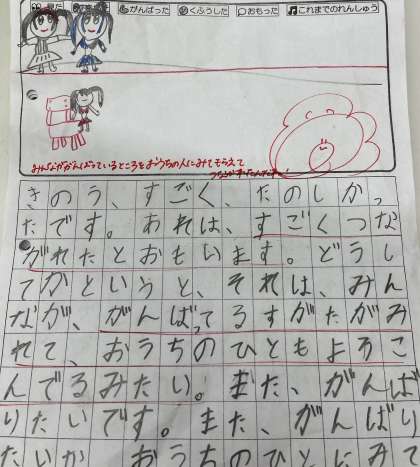 がんばった くふうした おもった これまでのれんしゅう
みんながが んばっているところをおうちの人にみてもらえて
きのう、すごく、たのしかっ
たです。あれは、すごくつな
がれたとおもいます。どうし
てかというと、それは、みん
なが、がんばってるすがたがみ
れて、おうちのひともよろこ
んでるみたい。また、がんば
りたいです。また、がんばり
たいか おうちのひとにみて